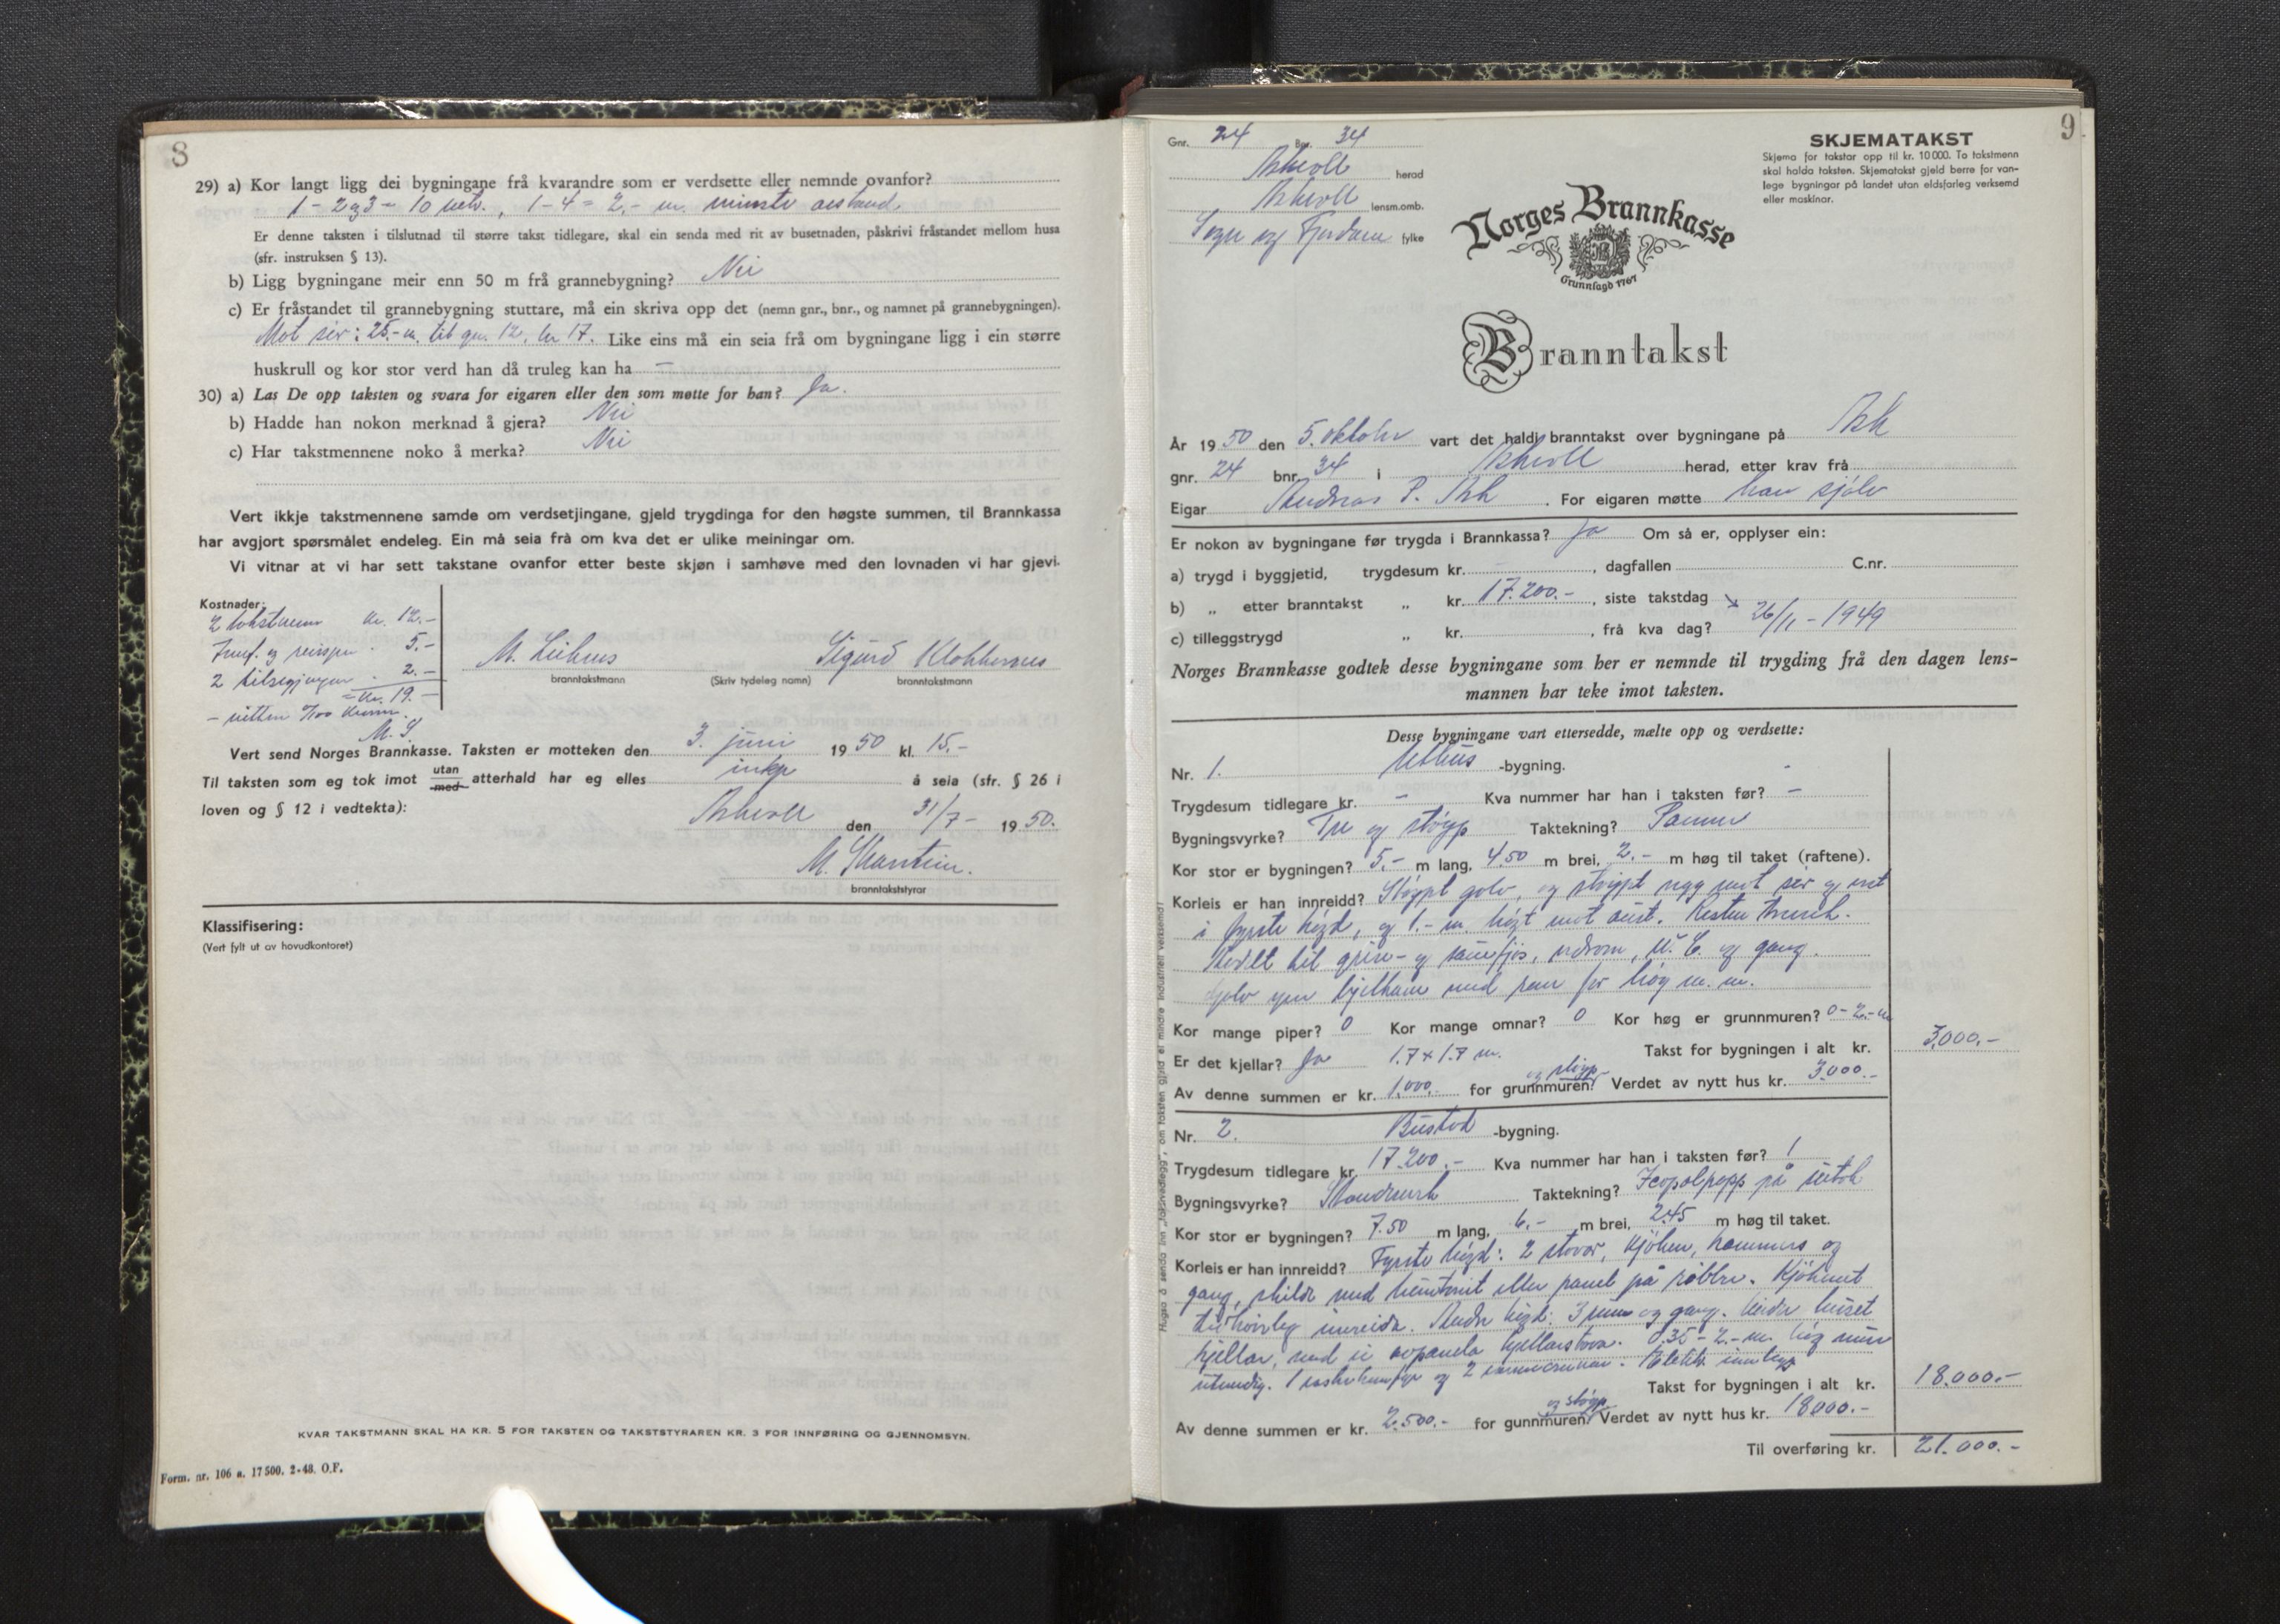 8
29) a) Kor langt ligg dei bygningane frå kvarandre som er verdsette eller nemnde ovanfor?
1 - 2 og 3 = 10 metr., 1 - 4 = 2,- m. minste avstand.
Er denne taksten i tilslutnad til større takst tidlegare, skal ein senda med rit av busetnaden, påskrivi fråstandet mellom husa
(sfr. instruksen § 13).
b) Ligg bygningane meir enn 50 m frå grannebygning? Nei
c) Er fråstandet til grannebygning stuttare, må ein skriva opp det (nemn gnr., bnr., og namnet på grannebygningen).
Mot sør: 25,- m. til gn. 12, br 17. Like eins må ein seia frå om bygningane ligg i ein større
huskrull og kor stor verd han då truleg kan ha —
30) a) Las De opp taksten og svara for eigaren eller den som møtte for han? Ja.
b) Hadde han nokon merknad å gjera? Nei
c) Har takstmennene noko å merka? Nei
Vert ikkje takstmennene samde om verdsetjingane, gjeld trygdinga for den høgste summen, til Brannkassa
har avgjort spørsmålet endeleg. Ein må seia frå om kva det er ulike meiningar om.
Vi vitnar at vi har sett takstane ovanfor etter beste skjøn i samhøve med den lovnaden vi har gjevi.
Kostnader:
2 takstmenn kr. 12.-
Innf. og 5.-
2 tilsegjingar 2.-
= kr. 19.-
- nitten 0/00 kroner.
M. S.
M. Sigurd
branntakstmann (Skriv tydeleg namn) branntakstmann
Vert send Norges Brannkasse. Taksten er motteken den 3. juni 1950 kl. 15.-
Til taksten som eg tok imot utan med atterhald har eg elles inkje å seia (sfr. § 26 i
loven og § 12 i vedtekta):
Askvoll den 31/7- 1950.
M.
branntakststyrar
Klassifisering:
(Vert fylt ut av hovudkontoret)
KVAR TAKSTMANN SKAL HA KR. 5 FOR TAKSTEN OG TAKSTSTYRAREN KR. 3 FOR INNFØRING OG GJENNOMSYN.
Form. nr. 106 a. 17500. 2-48. O.F.
9
Gnr. 24 Bnr. 34
Askvoll herad
Askvoll lensm.omb.
Sogn og Fjordane fylke
SKJEMATAKST
Skjema for takstar opp til kr. 10 000. To takstmenn
skal halda taksten. Skjematakst gjeld berre for van-
lege bygningar på landet utan eldsfarleg verksemd
eller maskinar.
Norges Brannkasse
Grunnlagd 1767
Branntakst
År 1950 den 5. oktober vart det haldi branntakst over bygningane på Ask
gnr. 24 bnr. 34 i Askvoll herad, etter krav frå
Eigar Andreas P. Ask. For eigaren møtte han sjølv
Er nokon av bygningane før trygda i Brannkassa? Ja Om så er, opplyser ein:
a) trygd i byggjetid, trygdesum kr. , dagfallen C.nr.
b) „ etter branntakst „ kr. 17.200.- , siste takstdag
c) tilleggstrygd „ kr. , frå kva dag? 26/11 - 1949
Norges Brannkasse godtek desse bygningane som her er nemnde til trygding frå den dagen lens-
mannen har teke imot taksten.
Desse bygningane vart ettersedde, mælte opp og verdsette:
Nr. 1. Uthus -bygning.
Trygdesum tidlegare kr. - Kva nummer har han i taksten før? -
Bygningsvyrke? Tre og støyp Taktekning? Panner
Kor stor er bygningen? 5.- m lang, 4.50 m brei, 2.- m høg til taket (raftene).
Korleis er han innreidd? Støypt golv, og støypt vegg mot sør og vest
i fyrste høgd, og 1.- m. høgt mot aust. Resten
til grise- og sauefjøs, vedrom, W. C. og gang.
Golv yver med rom for høy m. m.
Kor mange piper? 0 Kor mange omnar? 0 Kor høg er grunnmuren? 0 - 2.- m
Er det kjellar? Ja 1.7 x 1.7 m. Takst for bygningen i alt kr. 3.000.-
Av denne summen er kr. 1.000.- for grunnmuren og støyp. Verdet av nytt hus kr. 3.000.-
Nr. 2. Bustad -bygning.
Trygdesum tidlegare kr. 17.200.- Kva nummer har han i taksten før? 1
Bygningsvyrke? Taktekning? Icopalpapp på
Kor stor er bygningen? 7.50 m lang, 6.- m brei, 2.45 m høg til taket.
Korleis er han innreidd? Fyrste høgd: 2 stover, kjøken, kammers og
gang, med eller panel på Kjøkenet
innreidd. Andre høgd: 3 rom og gang. Under huset
kjellar, med ei kjellarstove. 0.35 - 2.- m. høg mur
utvendig. 1 og 2
Takst for bygningen i alt kr. 18.000.-
Av denne summen er kr. 2.500.- for gunnmuren og støyp. Verdet av nytt hus kr. 18000.-
Til overføring kr. 21.000.-